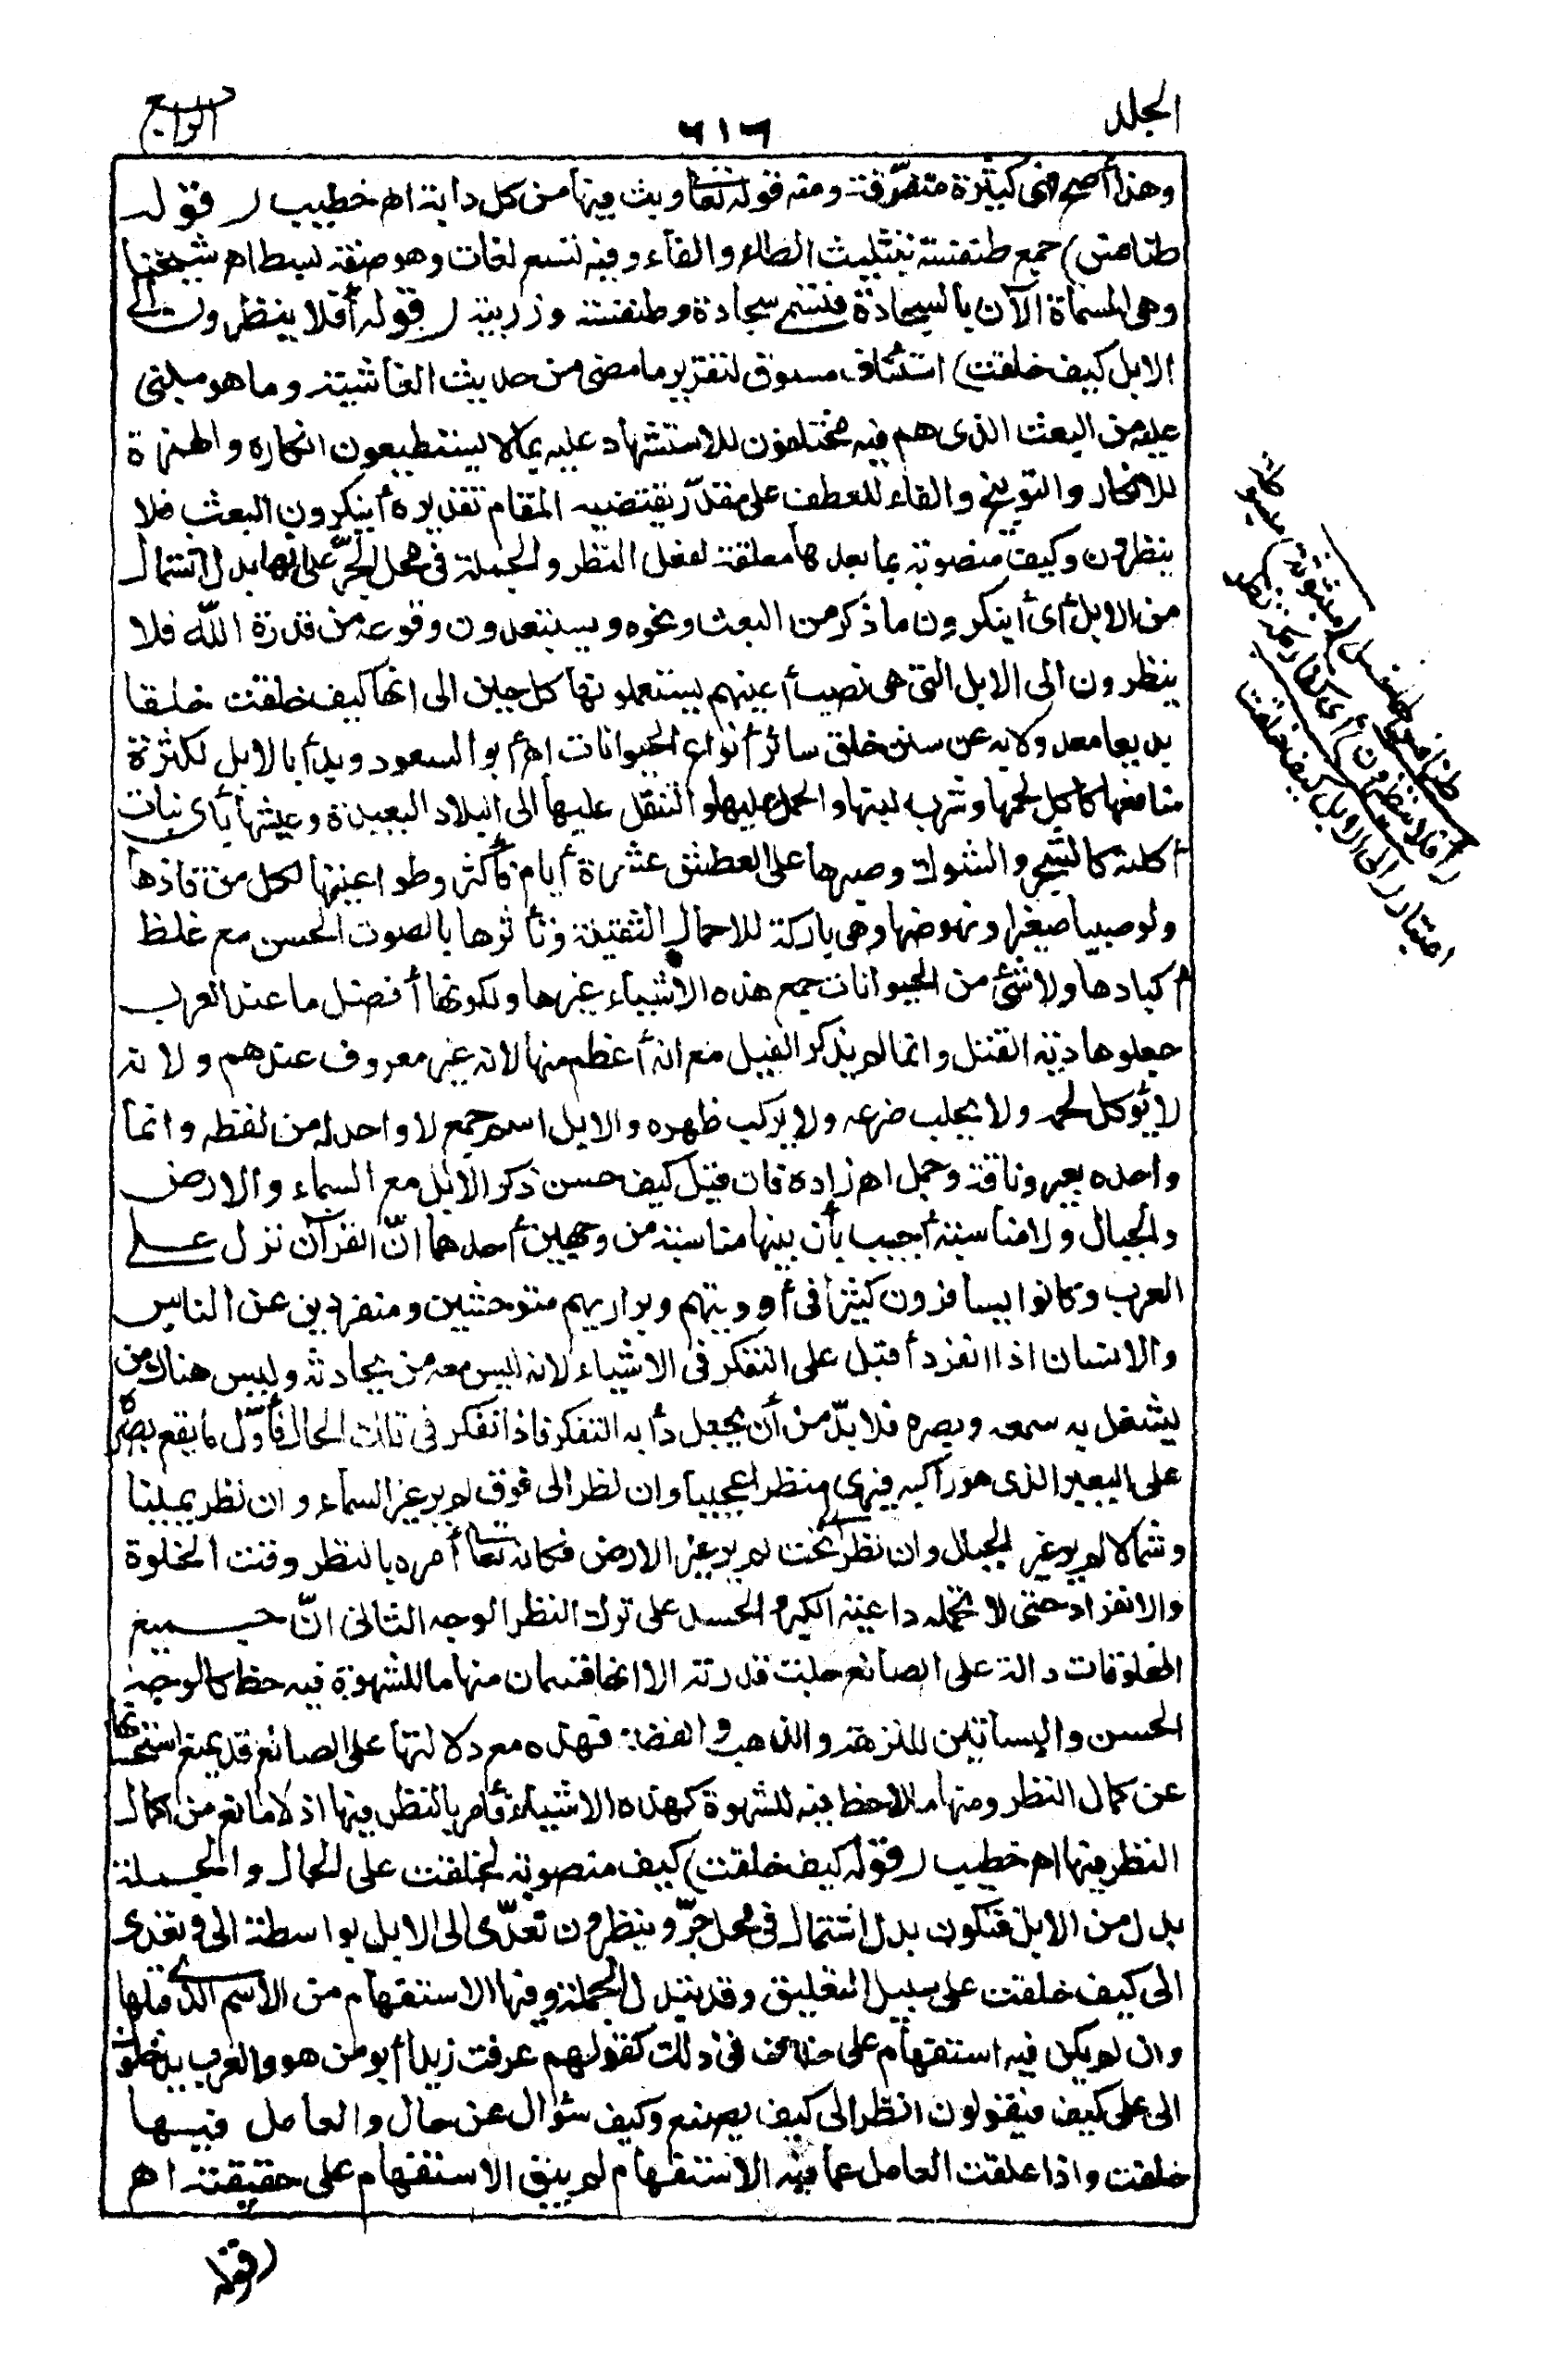 الجلد
٦١٦
الرابع
وهذا أصح فهى كثيرة متفرّقة ومنه قوله تعا وبث فيها من كل دابة اه خطيب (قوله
طنافس) جمع طنفسة بتثليث الطاء والفاء وفيه تسع لغات وهو صفة لبسط اه شيخنا
وهى المسماة الآن بالسجادة فتسمى سجادة وطنفسة وزربية (قوله أفلا ينظرون الى
الابل كيف خلقت) استئناف مسوق لتقرير ما مضى من حديث الغاشية وما هو مبنى
عليه من البعث الذى هم فيه مختلفون للاستشهاد عليه بما لا يستطيعون انكاره والهمزة
للانكار والتوبيخ والفاء للعطف على مقدّر يقتضيه المقام تقديره أينكرون البعث فلا
ينظرون وكيف منصوبة بما بعدها معلقة لفعل النظر والجملة فى محل الجرّ على انها بدل اشتمال
من الابل أى أينكرون ما ذكر من البعث ونحوه ويستبعدون وقوعه من قدرة الله فلا
ينظرون الى الابل التى هى نصب أعينهم يستعملونها كل حين الى انها كيف خلقت خلقا
بديعا معدولا به عن سنن خلق سائر أنواع الحيوانات اه أبو السعود وبدأ بالابل لكثرة
منافعها كأكل لحمها وشرب لبنها والحمل عليها والتنقل عليها الى البلاد البعيدة وعيشها بأى نبات
أكلته كالشجر والشوك وصبرها على العطش عشرة أيام فأكثر وطواعيتها لكل من قادها
ولو صبيا صغيرا ونهوضها وهى باركة للاحمال الثقيلة وتأثرها بالصوت الحسن مع غلظ
أكبادها ولا شئ من الحيوانات جمع هذه الاشياء غيرها ولكونها أفضل ما عند العرب
جعلوها دية القتل وانما لم يذكر الفيل مع انه أعظم منها لانه غير معروف عندهم ولانه
لا يؤكل لحمه ولا يحلب ضرعه ولا يركب ظهره والابل اسم جمع لا واحد له من لفظه وانما
واحده بعير وناقة وجمل اه زاده فان قيل كيف حسن ذكر الابل مع السماء والارض
والجبال ولا مناسبة أجيب بأن بينها مناسبة من وجهين أحدهما انّ القرآن نزل على
العرب وكانوا يسافرون كثيرا فى أوديتهم وبراريهم متوحشين ومنفردين عن الناس
والانسان اذا انفرد أقبل على التفكر فى الاشياء لانه ليس معه من يحادثه وليس هناك من
يشغل به سمعه وبصره فلا بدّ من أن يجعل دأبه التفكر فاذا تفكر فى تلك الحال فأوّل ما يقع بصره
على البعير الذى هو راكبه فيرى منظرا عجيبا وان نظر الى فوق لم ير غير السماء وان نظر يمينا
وشمالا لم ير غير الجبال وان نظر الى تحت لم ير غير الارض فكانه تعا أمره بالنظر وقت الخلوة
والانفراد حتى لا تحمله داعية الكبر والحسد على ترك النظر الوجه الثانى انّ جميع
المخلوقات دالة على الصانع جلت قدرته الا انها قسمان منها ما للشهوة فيه حظ كالوجه
الحسن والبساتين للنزهة والذهب والفضة فهذه مع دلالتها على الصانع قد يمنع استحسانها
عن كمال النظر ومنها ما لا حظ فيه للشهوة كهذه الاشياء فأمر بالنظر فيها اذ لا مانع من اكمال
النظر فيها اه خطيب (قوله كيف خلقت) كيف منصوبة بخلقت على الحال والجملة
بدل من الابل فتكون بدل اشتمال فى محل جرّ وينظرون تعدّى الى الابل بواسطة الى وتعدى
الى كيف خلقت على سبيل التعليق وقد تبدل الجملة وفيها الاستفهام من الاسم الذى قبلها
وان لم يكن فيه استفهام على خلاف فى ذلك كقولهم عرفت زيدا أبو من هو والعرب يدخلون
الى على كيف فيقولون انظر الى كيف يصنع وكيف سؤال عن حال والعامل فيها
خلقت واذا علقت العامل عما فيه الاستفهام لم يبق الاستفهام على حقيقته اه
(قوله
طنافس (مبثوثة) مبسوطة
(أفلا ينظرون) أى كفار مكة نظر
اعتبار (الى الابل كيف خلقت